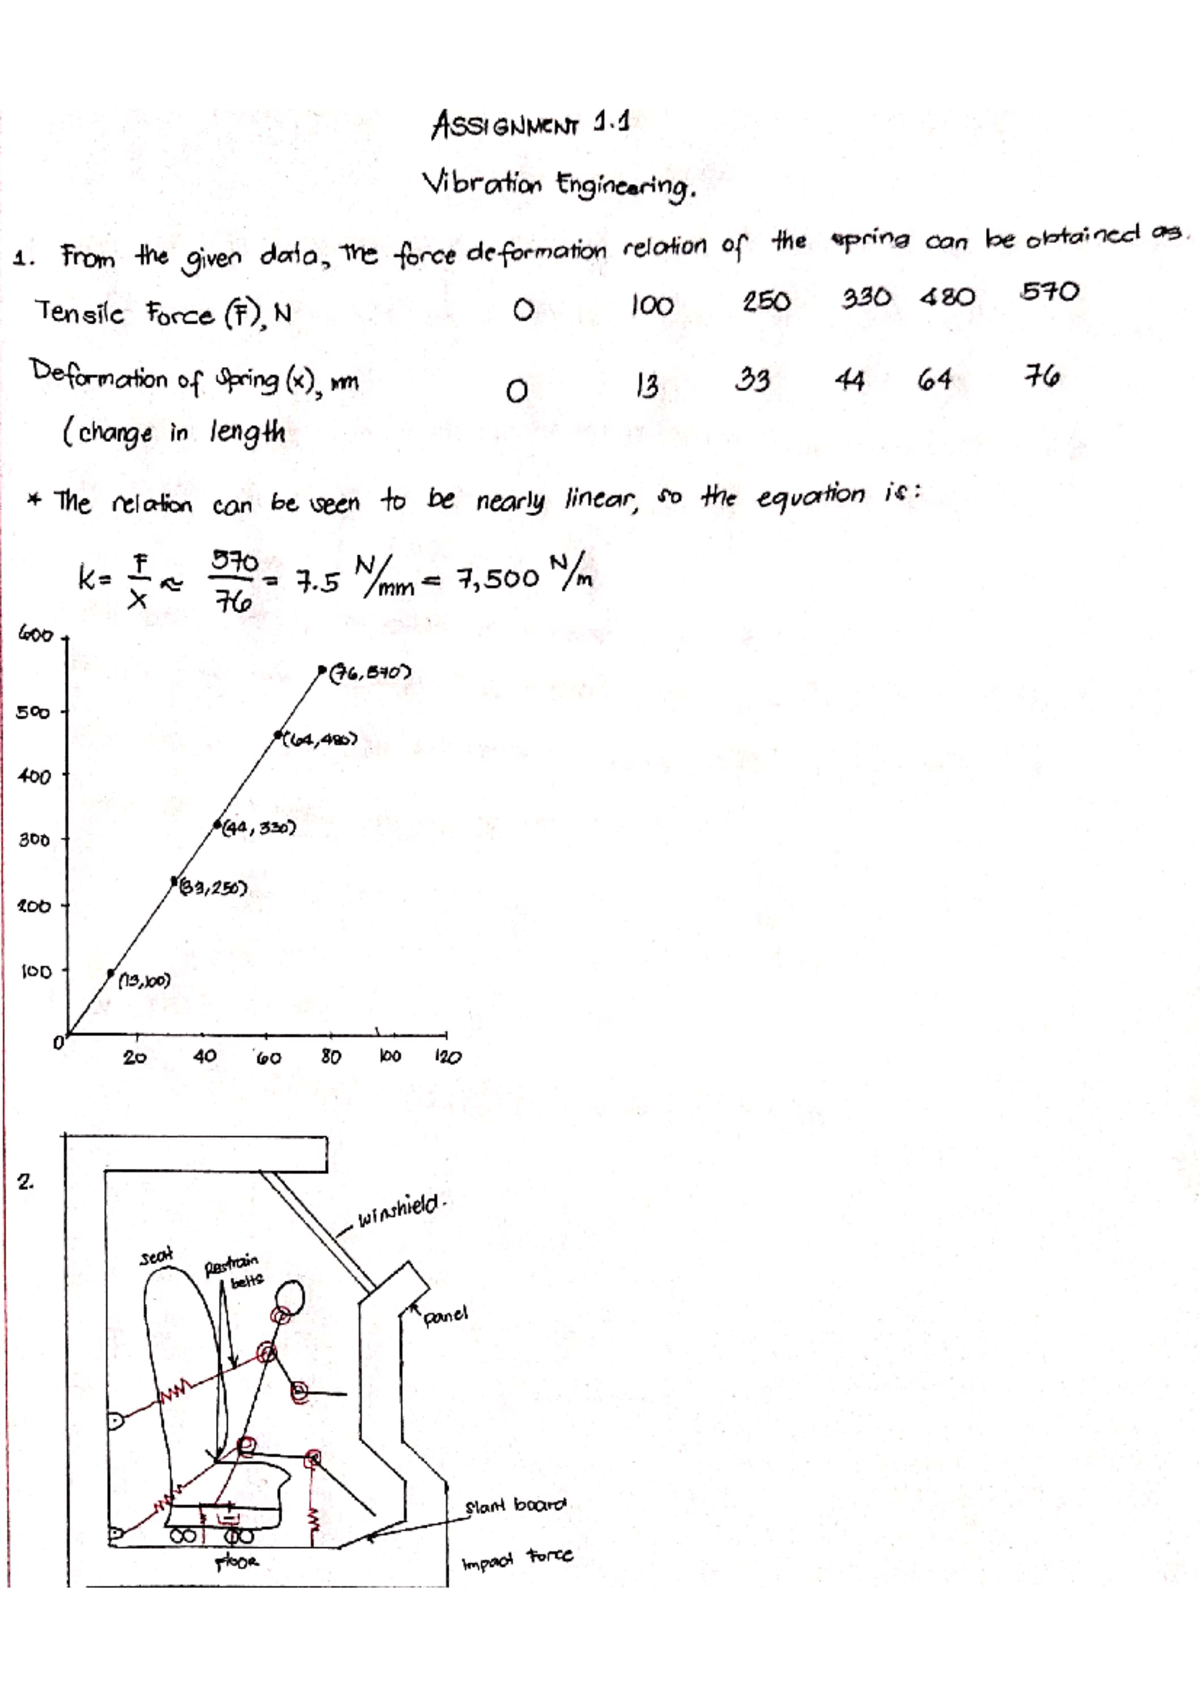 ASSIGNMENT 1.1
Vibration Engineering.
1. From the given data, the force deformation relation of the spring can be obtained as.
Tensile Force (F), N 0 100 250 330 480 570
Deformation of Spring (x), mm 0 13 33 44 64 76
(change in length
* The relation can be seen to be nearly linear, so the equation is:
k = F/x ≈ 570/76 = 7.5 N/mm = 7,500 N/m
600
(76,570)
500
(64,480)
400
(44,330)
300
(33,250)
200
100
(13,100)
0
20 40 60 80 100 120
2.
winshield.
seat
Restrain
belts
panel
Slant board
Floor
Impact Force